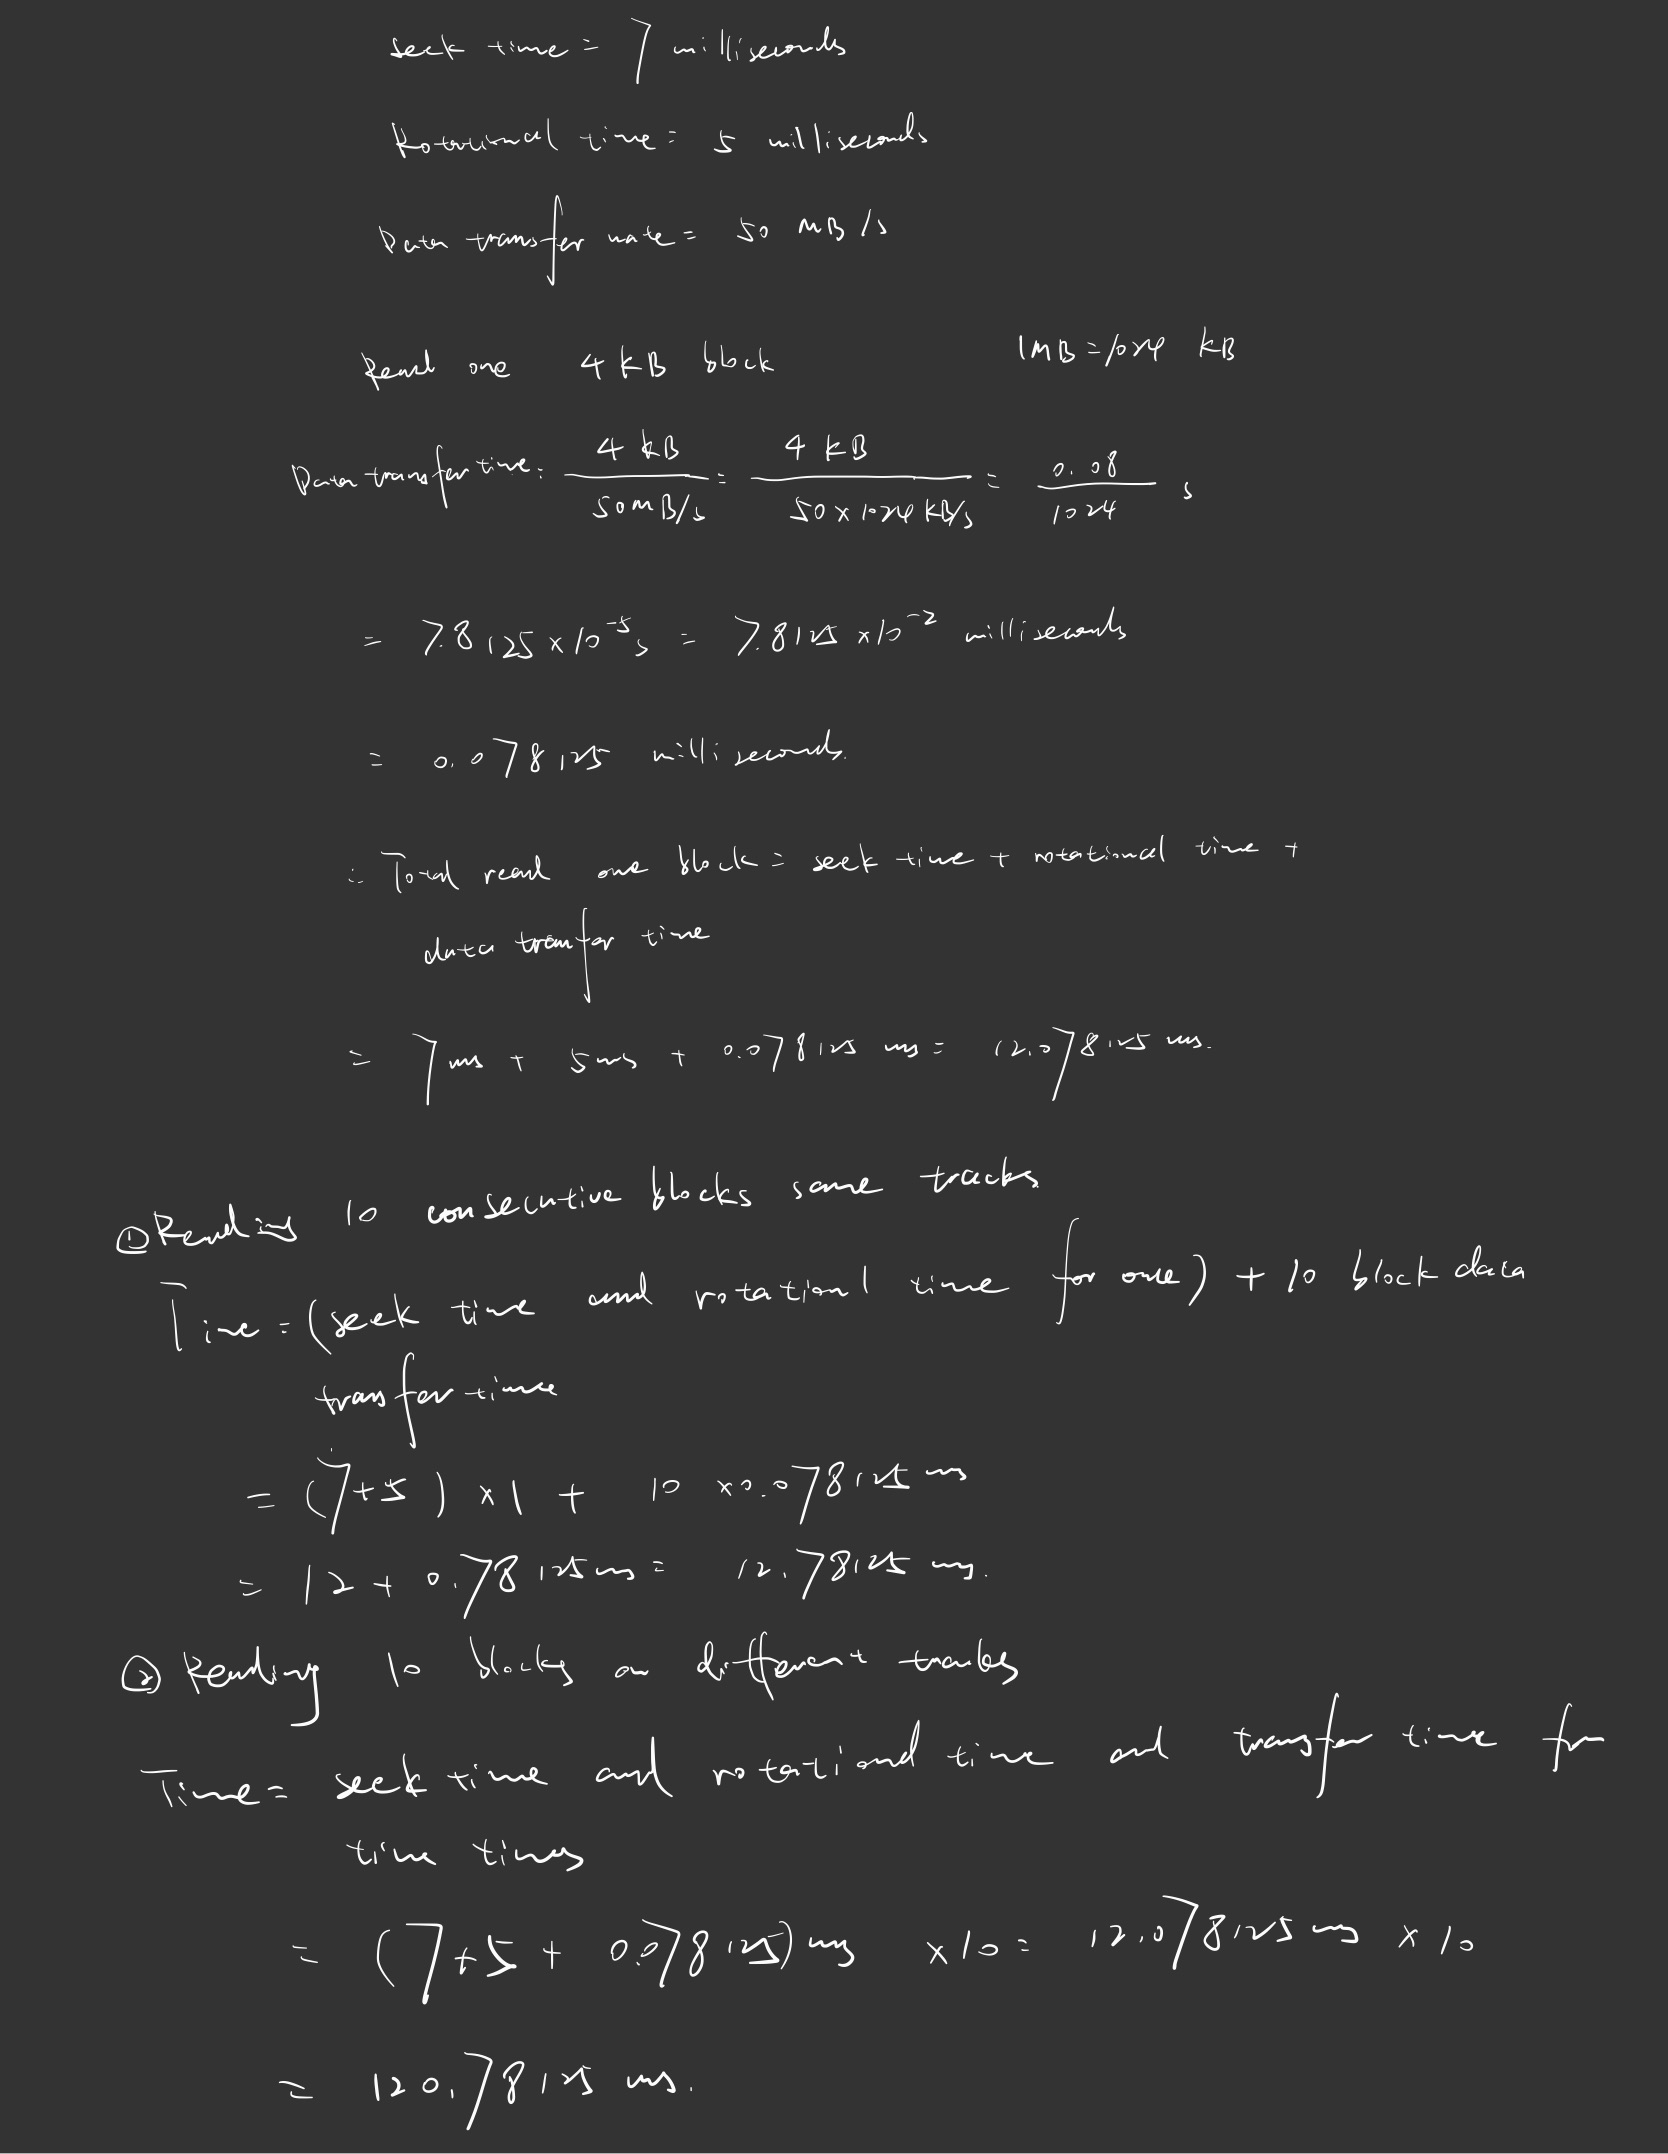 seek time = 7 milliseconds
Rotational time = 5 milliseconds
Data transfer rate = 50 MB/s
Read one 4 kB block 1MB = 1024 kB
Data transfer time = 4 kB / 50MB/s = 4 kB / 50 × 1024 kB/s = 0.08 / 1024 s
= 7.8125 × 10^-5 s = 7.8125 × 10^-2 milliseconds
= 0.078125 milliseconds.
∴ Total read one block = seek time + rotational time +
data tranfer time
= 7 ms + 5 ms + 0.078125 ms = 12.078125 ms.
① Reading 10 consecutive blocks same tracks
Time = (seek time and rotationl time for once) + 10 block data
transfer time
= (7+5) × 1 + 10 × 0.078125 ms
= 12 + 0.78125 ms = 12.78125 ms.
② Reading 10 blocks on different tracks
Time = seek time and rotational time and transfer time for
time times
= (7+5+ 0.078125) ms × 10 = 12.078125 ms × 10
= 120.78125 ms.